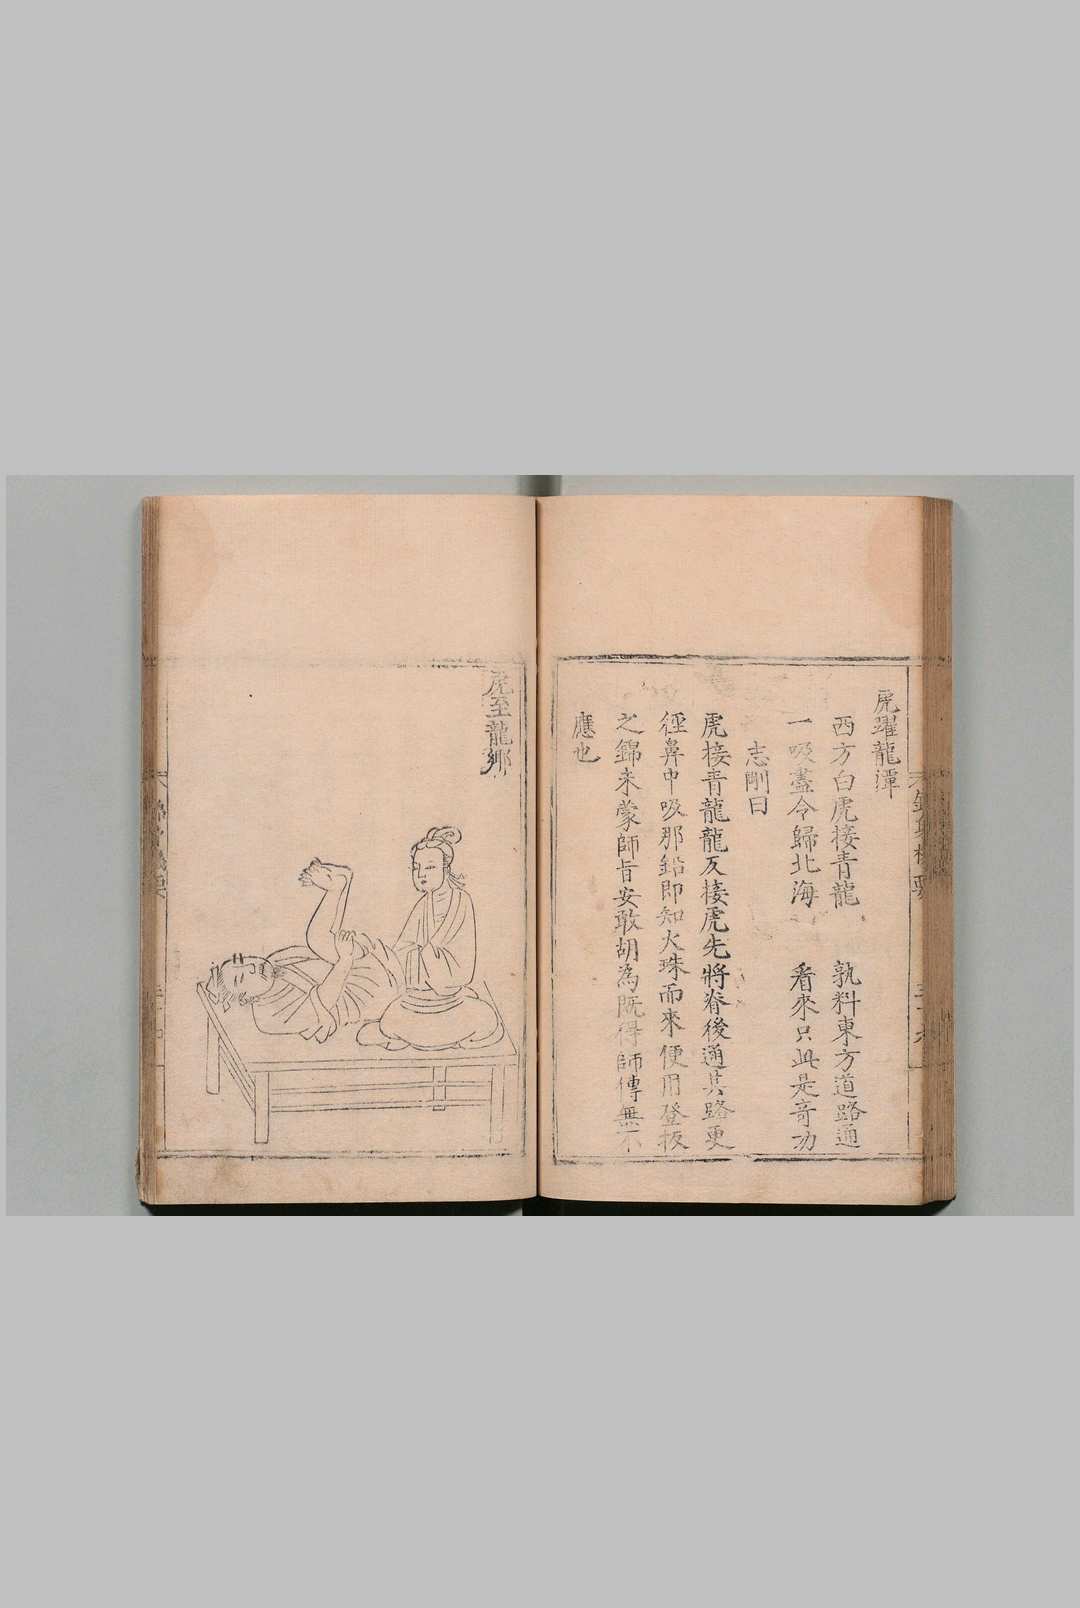 虎躍龍潭
西方白虎接青龍　孰料東方道路通
一吸盡令歸北海　看來只此是奇功
志剛曰
虎接青龍龍反接虎先將脊後通其路更
徑鼻中吸那鉛即知火珠而來便用登扳
之錦未蒙師旨安敢胡為既得師傳無不
應也
虎至龍鄉